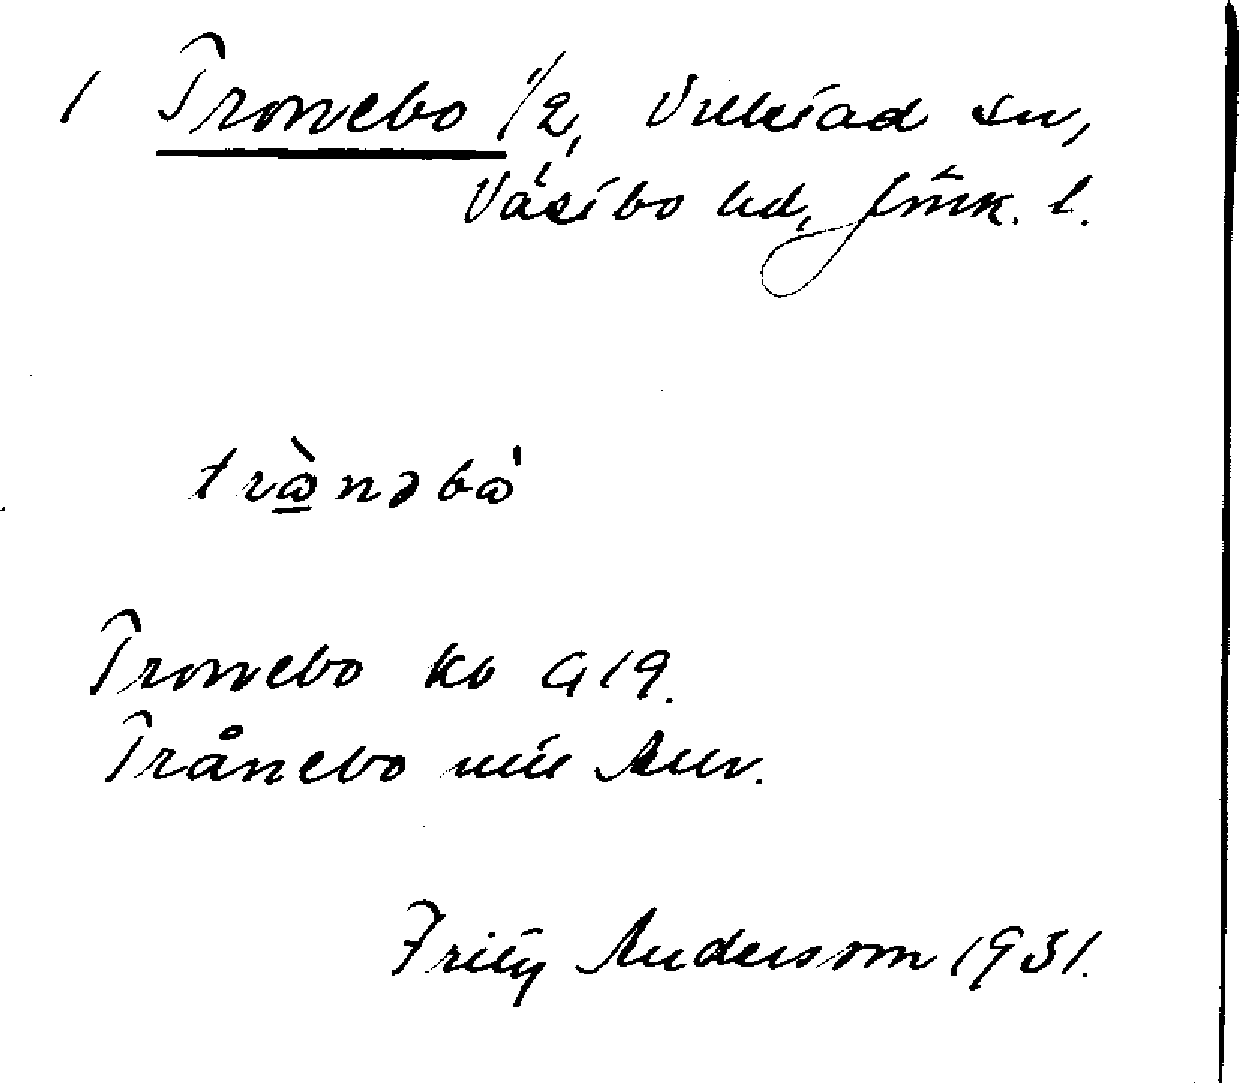 1 Tronebo 1/2, Villstad sn,
Västbo hd, Jmk. l.
trònəbò
Tronebo kb G 19.
Trånebo uttr Anv.
Fritz Andersson 1931.